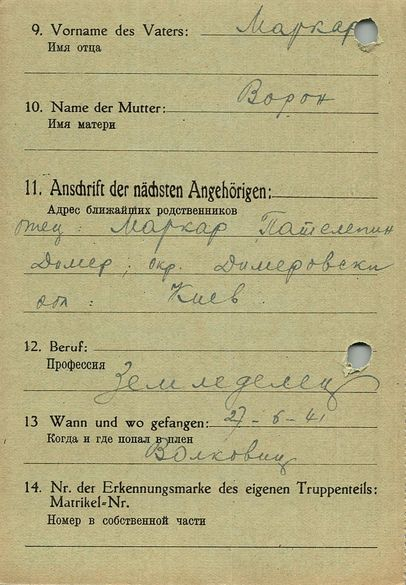 9. Vorname des Vaters: Маркар
Имя отца
10. Name der Mutter: Ворон
Имя матери
11. Anschrift der nächsten Angehörigen:
Адрес ближайших родственников
отец: Маркар Пателепин
Димер, окр. Димеровски
обл: Киев.
12. Beruf:
Профессия
Земледелец
13 Wann und wo gefangen: 27-6-41
Когда и где попал в плен
Волковиц
14. Nr. der Erkennungsmarke des eigenen Truppenteils:
Matrikel-Nr.
Номер в собственной части